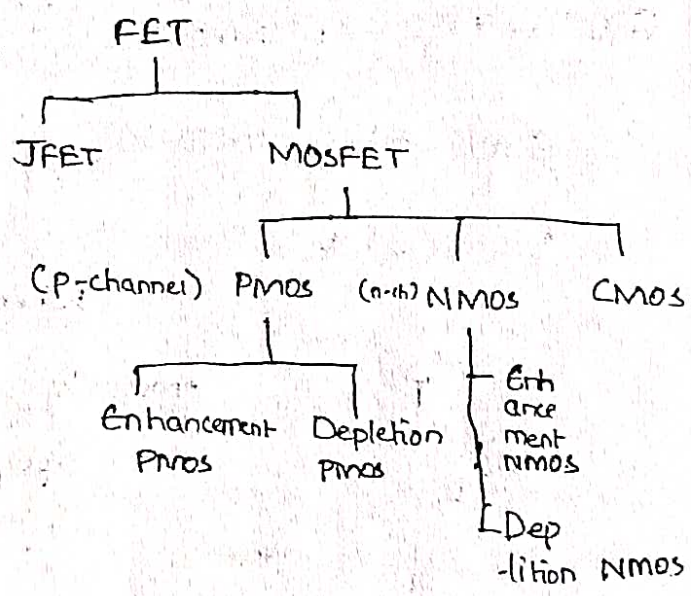 FET
JFET MOSFET
(p-channel) PMOS (n-ch) NMOS CMOS
Enhancement
PMOS
Depletion
PMOS
Enh
ance
ment
NMOS
Dep
-lition NMOS